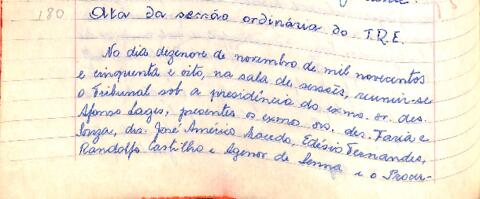 180
Ata da sessão ordinária do T.R.E.
No dia dezenove de novembro de mil novecentos
e cinquenta e oito, na sala de sessões, reuniu-se
o Tribunal sob a presidência do exmo. sr. des.
Afonso Lages, presentes os exmos srs. des. Faria e
Souza, drs. José Américo Macedo, Edésio Fernandes,
Randolfo Castilho e Agenor de Senna e o Procu-